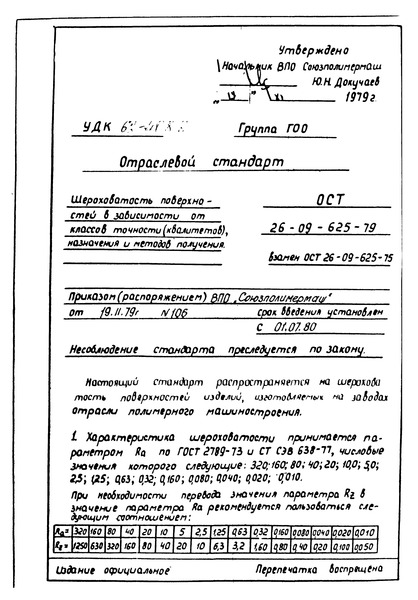 Утверждено
Начальник ВПО Союзполимермаш
Ю.Н. Докучаев
„13" XI 1979г.
УДК
Группа Г00
Отраслевой стандарт
Шероховатость поверхно-
стей в зависимости от
классов точности (квалитетов),
назначения и методов получения.
ОСТ
26-09-625-79
Взамен ОСТ 26-09-625-75
Приказом (распоряжением) ВПО „Союзполимермаш"
от 19.11.79г N106 срок введения установлен
с 01.07.80
Несоблюдение стандарта преследуется по закону.
Настоящий стандарт распространяется на шерохова
тость поверхностей изделий, изготовляемых на заводах
отрасли полимерного машиностроения.
1. Характеристика шероховатости принимается па-
раметром Ra по ГОСТ 2789-73 и СТ СЭВ 638-77, числовые
значения которого следующие: 320; 160; 80; 40; 20; 10,0; 5,0;
2,5; 1,25; 0,63; 0,32; 0,160; 0,080; 0,040; 0,020; 0,010.
При необходимости перевода значения параметра Rz в
значение параметра Ra рекомендуется пользоваться сле-
дующим соотношением:
Ra= 320 160 80 40 20 10 5 2,5 1,25 0,63 0,32 0,160 0,080 0,040 0,020 0,010
Rz= 1250 630 320 160 80 40 20 10 6,3 3,2 1,60 0,80 0,40 0,20 0,100 0,050
Издание официальное Перепечатка воспрещена